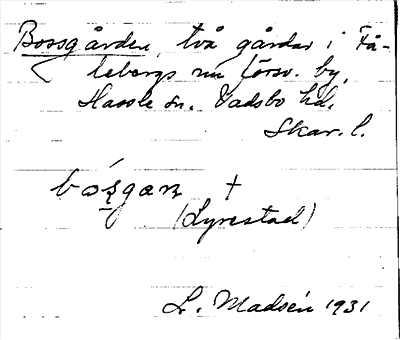 Bossgården, två gårdar i Få-
lebergs nu försv. by,
Hassle sn. Vadsbo hd.
Skar. l.
bóşgaɲ †
(Lyrestad)
L. Madsén 1931